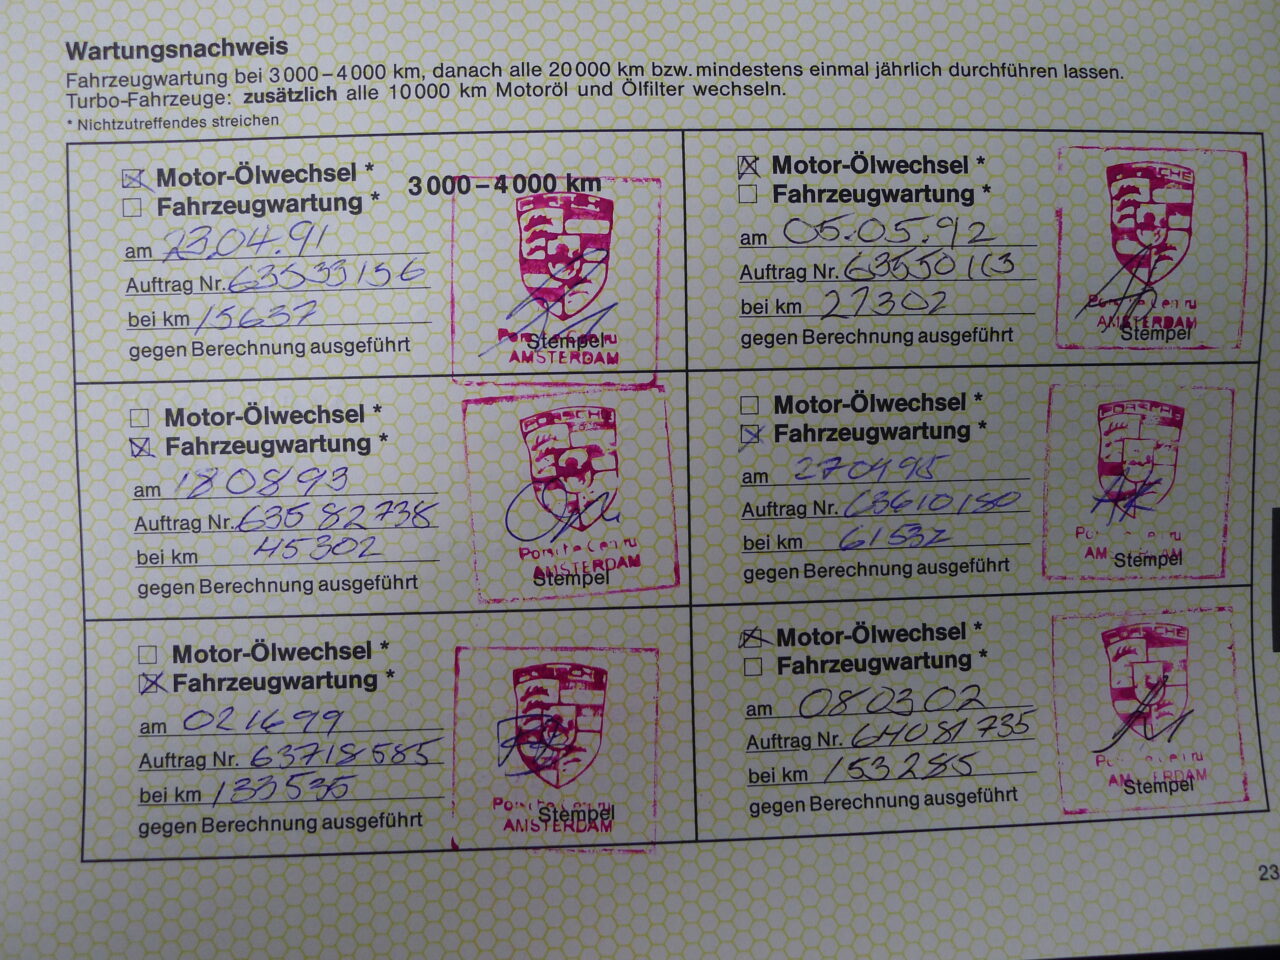 Wartungsnachweis
Fahrzeugwartung bei 3 000 – 4 000 km, danach alle 20 000 km bzw. mindestens einmal jährlich durchführen lassen.
Turbo-Fahrzeuge: zusätzlich alle 10 000 km Motoröl und Ölfilter wechseln.
* Nichtzutreffendes streichen
Motor-Ölwechsel *
3 000 – 4 000 km
Fahrzeugwartung *
am 23.04.91
Auftrag Nr. 63533156
bei km 15637
gegen Berechnung ausgeführt
Stempel
AMSTERDAM
Motor-Ölwechsel *
Fahrzeugwartung *
am 05.05.92
Auftrag Nr. 63550113
bei km 27302
gegen Berechnung ausgeführt
AMSTERDAM
Stempel
Motor-Ölwechsel *
Fahrzeugwartung *
am 180893
Auftrag Nr. 63582738
bei km 45302
gegen Berechnung ausgeführt
PORSCHE
AMSTERDAM
Stempel
Motor-Ölwechsel *
Fahrzeugwartung *
am 270495
Auftrag Nr. 63610180
bei km 61532
gegen Berechnung ausgeführt
PORSCHE
Stempel
Motor-Ölwechsel *
Fahrzeugwartung *
am 021699
Auftrag Nr. 63718585
bei km 133535
gegen Berechnung ausgeführt
Stempel
AMSTERDAM
Motor-Ölwechsel *
Fahrzeugwartung *
am 080302
Auftrag Nr. 64081735
bei km 153285
gegen Berechnung ausgeführt
PORSCHE
AMSTERDAM
Stempel
23